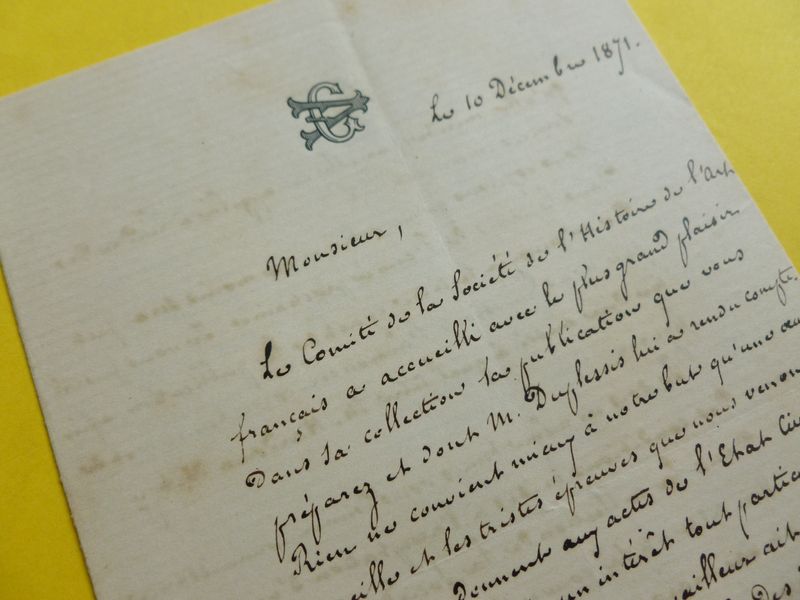 Le 10 Décembre 1871.
Monsieur,
Le Comité de la Société de l'Histoire de l'Art
français a accueilli avec le plus grand plaisir
Dans sa collection la publication que vous
préparez et dont M. Duplessis lui a rendu compte.
Rien ne convient mieux à notre but qu'une
et les tristes épreuves que nous venons
Donnent aux actes de l'Etat Civ
un intérêt tout partic
ait
Des